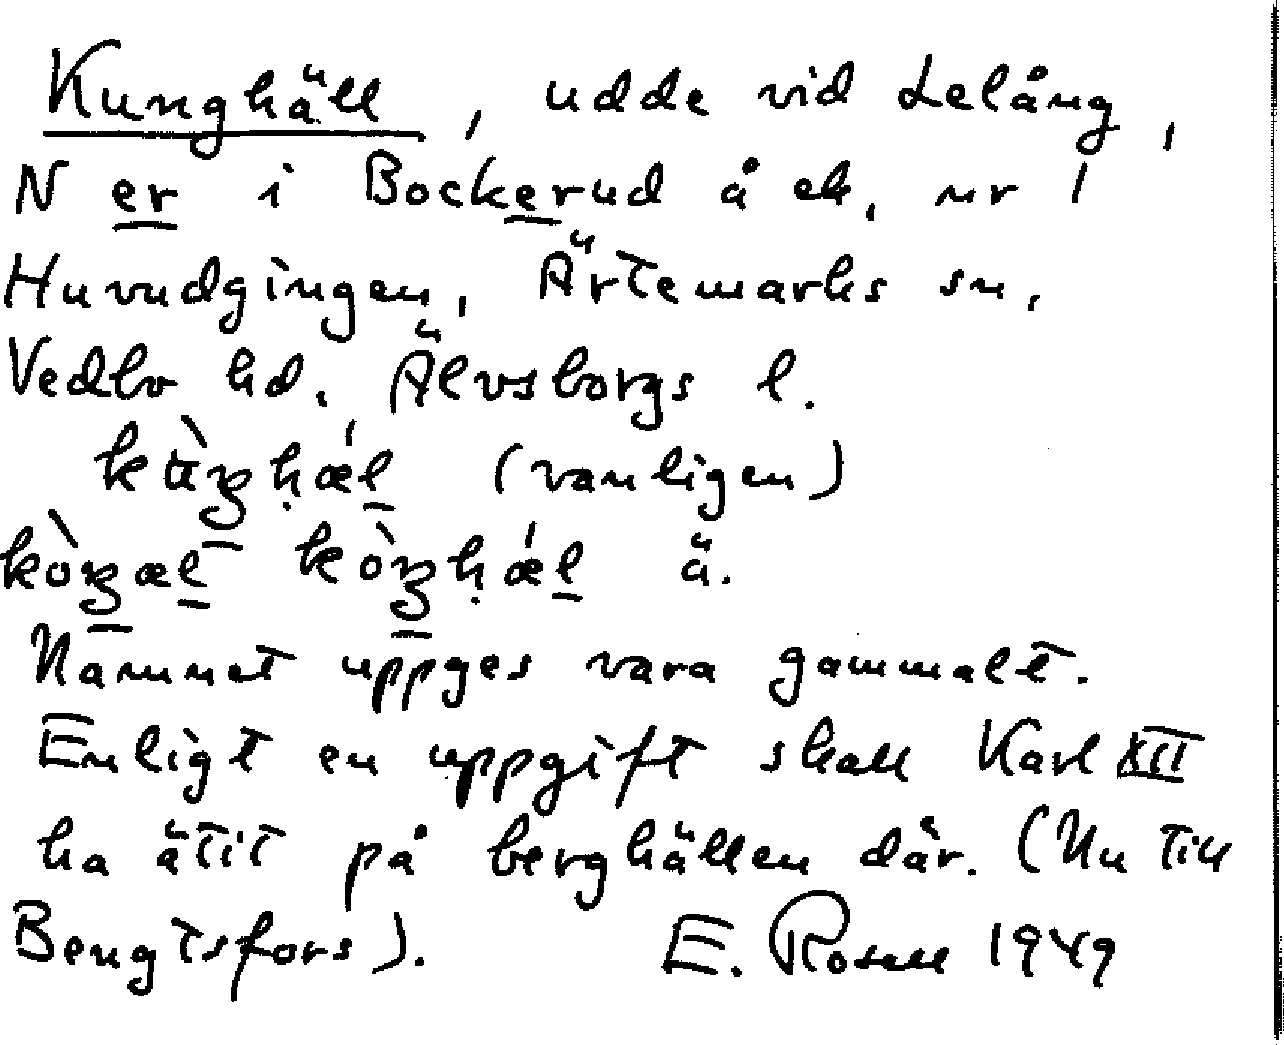 Kunghäll, udde vid Lelång,
N er i Bockerud å ek. nr 1
Huvudgingen, Ärtemarks sn,
Vedbo hd. Älvsborgs l.
(vanligen)
ä.
Namnet uppges vara gammalt.
Enligt en uppgift skall Karl XII
ha ätit på berghällen där. (Nu till
Bengtsfors). E. Rosell 1949